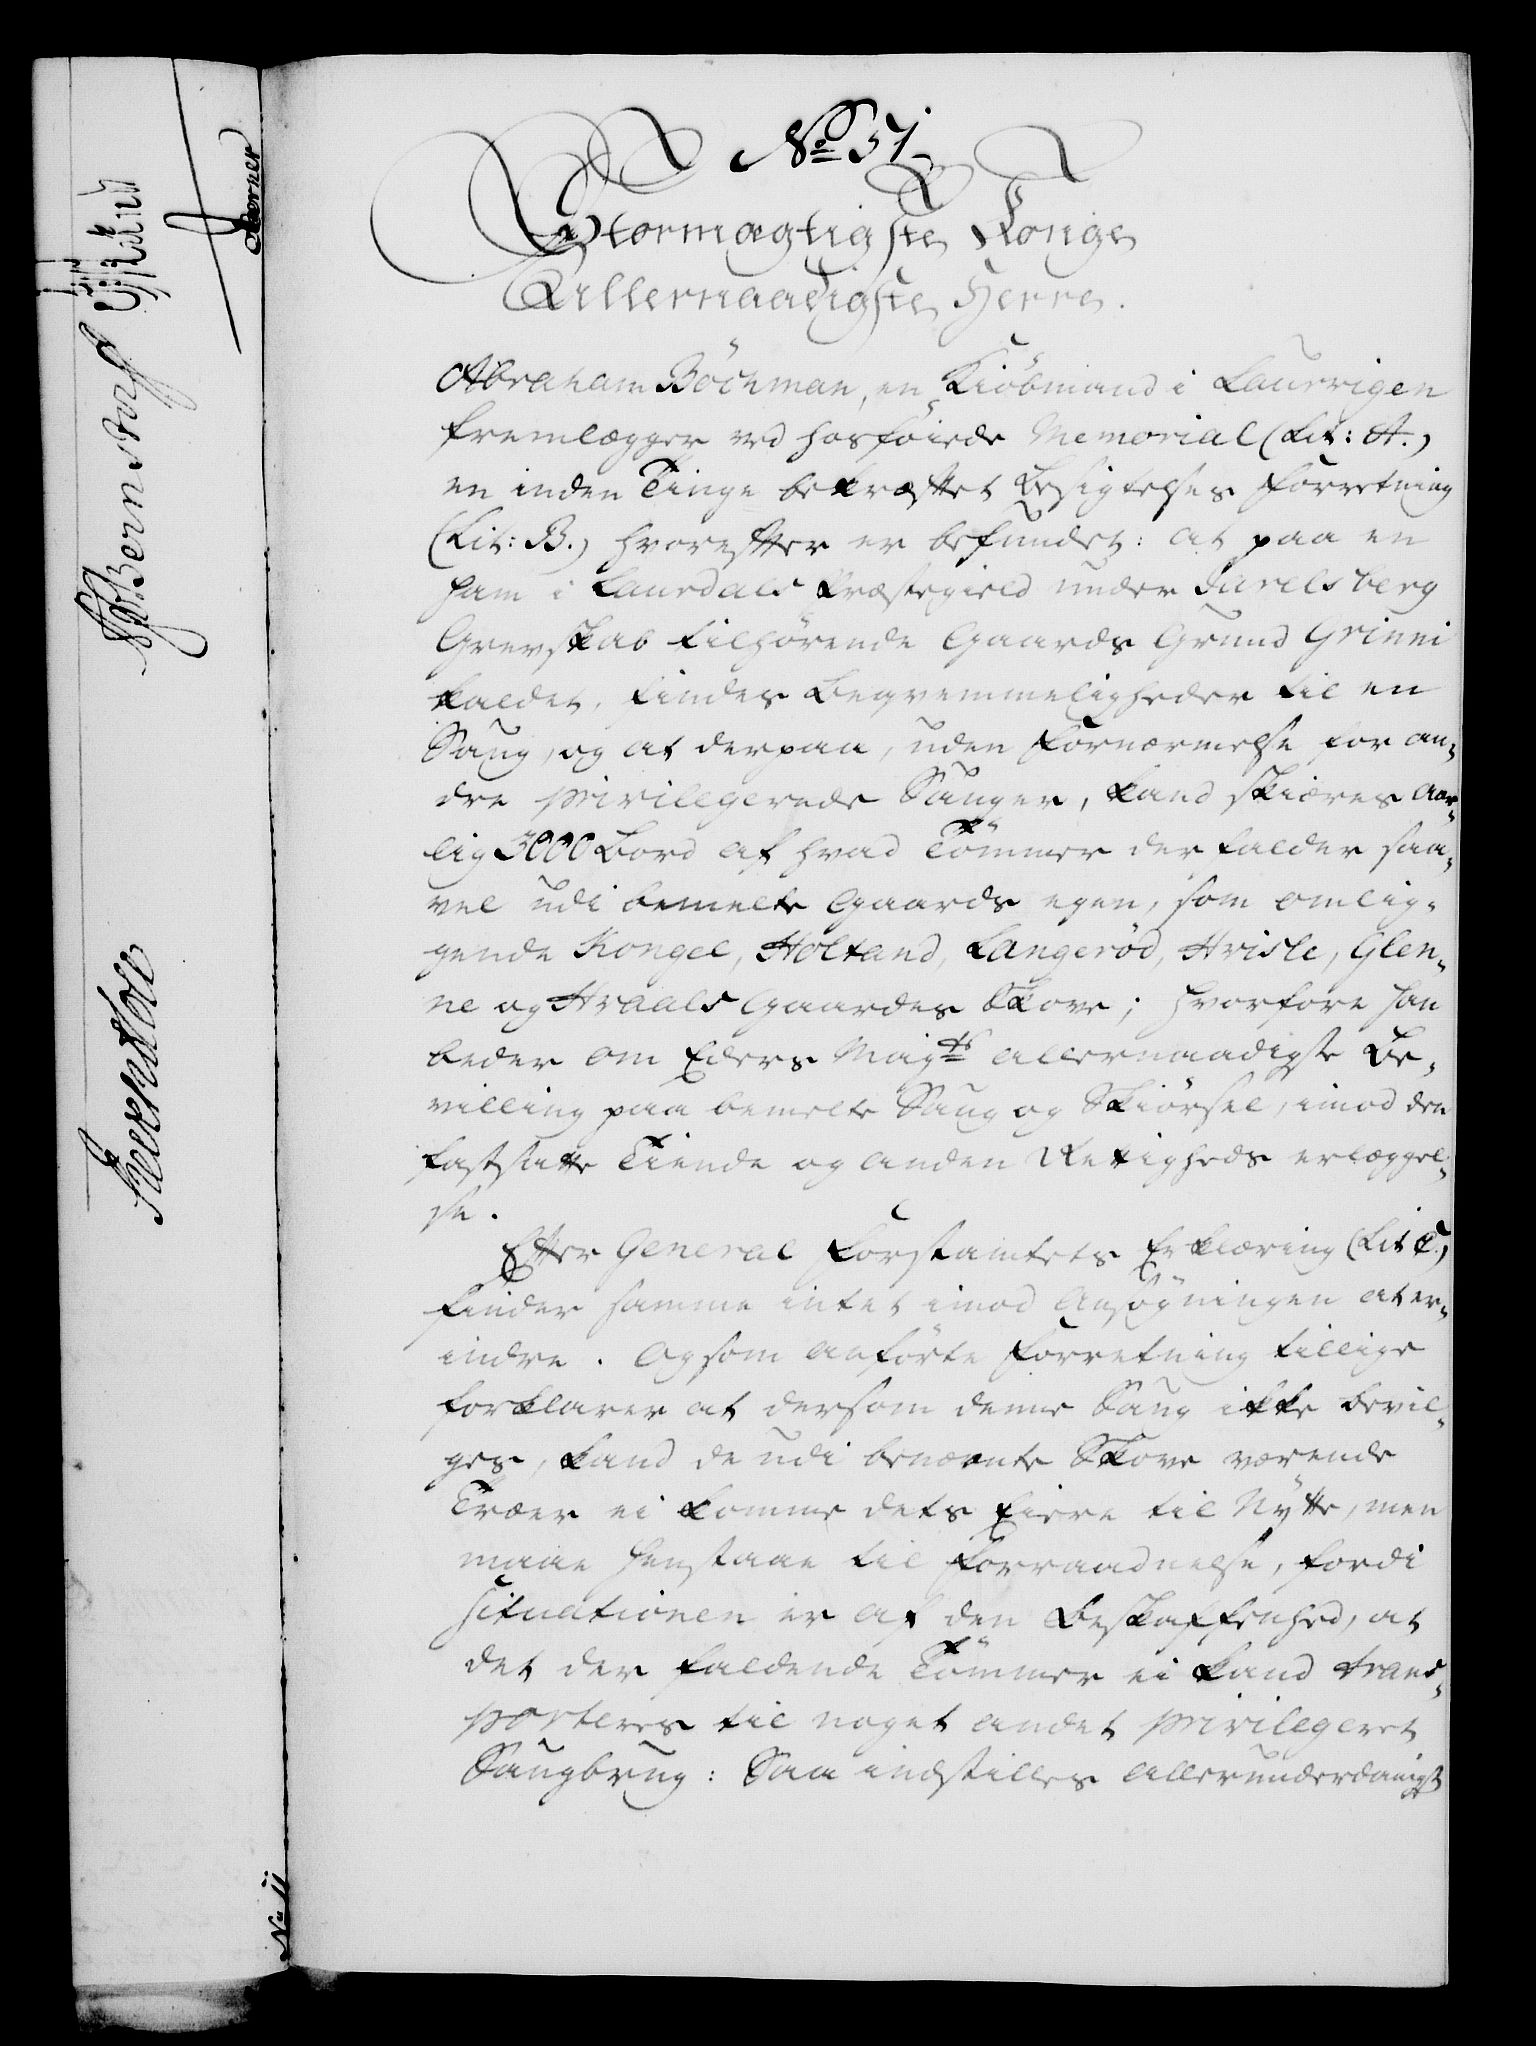 No 51.
Stormægtigste Konge
Allernaadigste Herre.
Abraham Böckman, en Kiöbmand i Laurvigen
fremlægger ved hosföiede Memorial (Lit: A.)
en inden Tinge bekræftet Besigtelses Forretning
(Lit: B.) hvorefter er befundet: at paa en
ham i Laurdals Præstegield under Jarlsberg
Grevskab tilhørende Gaards Grund Grinni
kaldet, findes Beqvemmeligheder til en
Saug, og at derpaa, uden Fornærmelse for an-
dre privilegerede Sauger, kand skiæres aar-
lig 3000 Bord af hvad Tömmer der falder saa-
vel udi bemelte Gaards egen, som omlig-
gende Kongel, Holtand, Langeröd, Hvisle, Glen-
ne og Hvaals Gaardes Skove; hvorfore han
beder om Eders Majts allernaadigste Be-
villing paa bemelte Saug og Skiörsel, imod den
fastsatte Tiende og anden Rettigheds erlæggel-
se.
Efter General Forstamtets Erklæring (Lit C.)
finder samme intet imod Ansögningen at er-
indre. Og som anförte Forretning tillige
forklarer at dersom denne Saug ikke bevil-
ges, kand de udi benævnte Skove værende
Træer ei komme dets Eiere til Nytte, men
maae henstaae til Forraadnelse, fordi
Situationen er af den Beskaffenhed, at
det der faldende Tömmer ei kand trans-
porteres til noget andet privilegeret
Saugbrug: Saa indstilles allerunderdanigst
Bernstorf
No 11